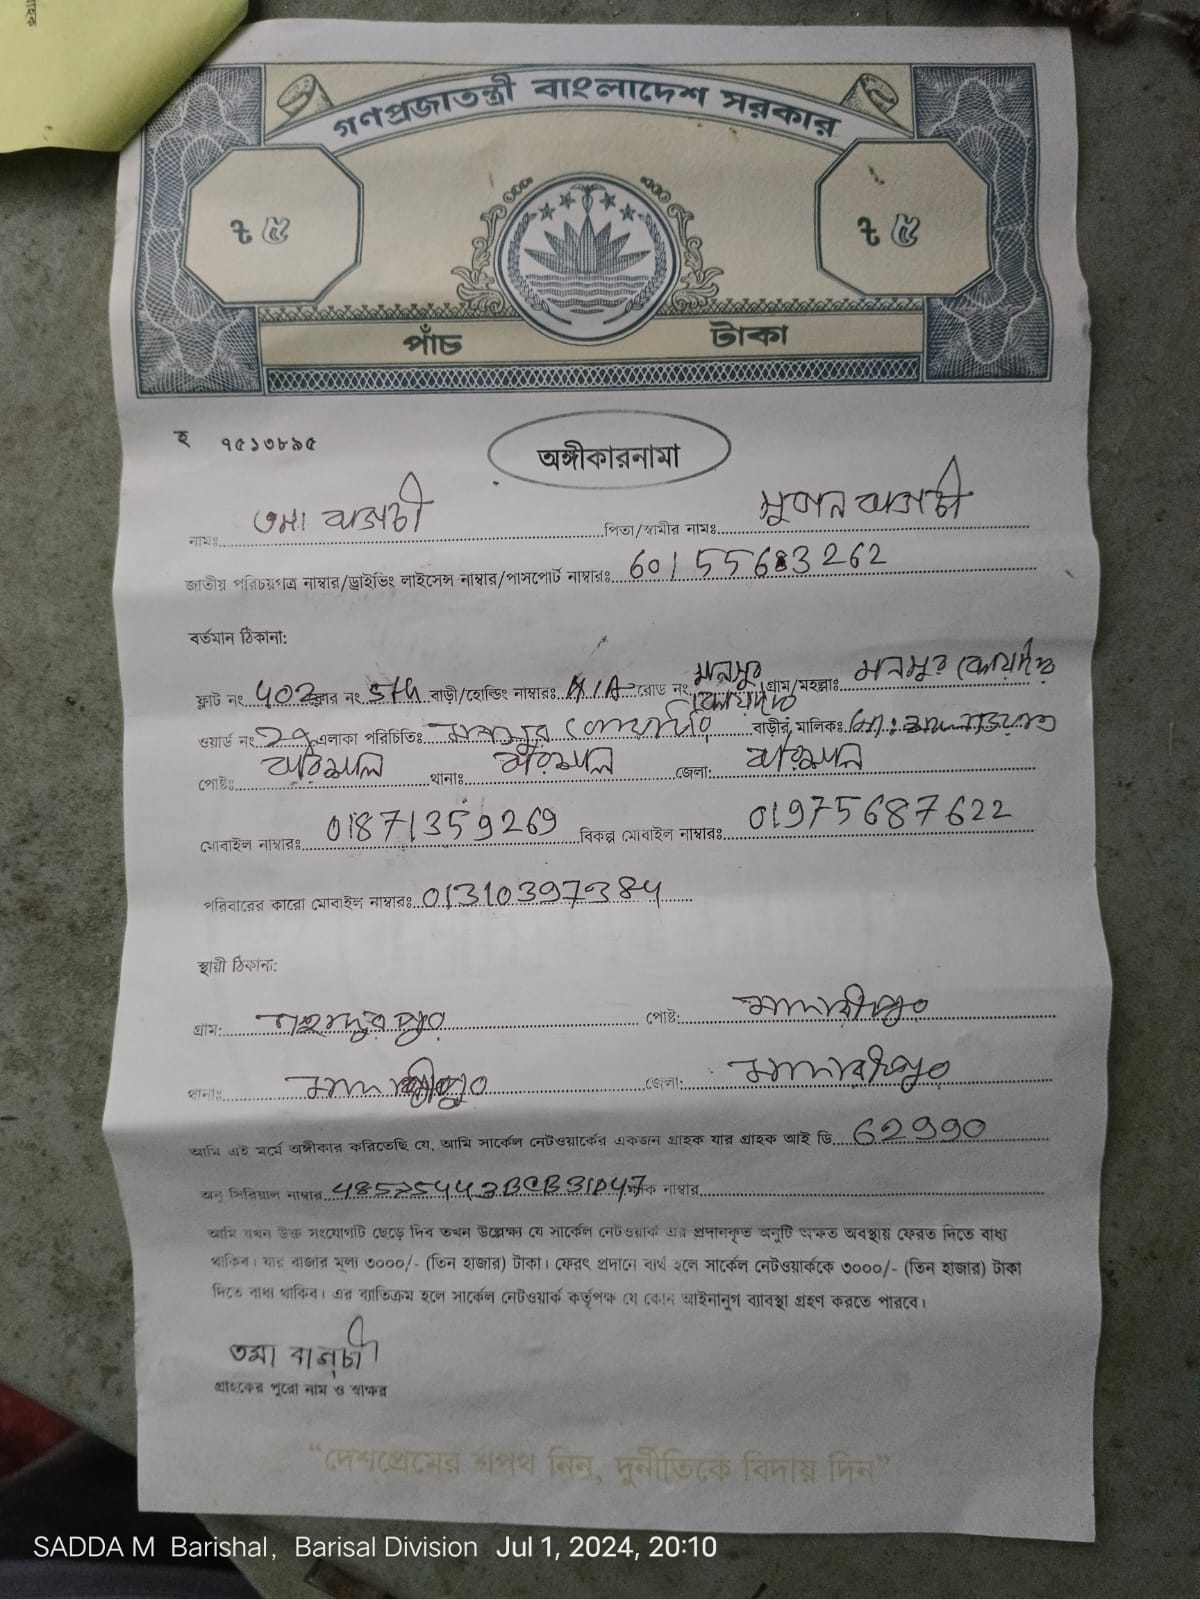 গণপ্রজাতন্ত্রী বাংলাদেশ সরকার
৳ ৫ ৳ ৫
পাঁচ টাকা
হ ৭৫১৩৮৯৫
অঙ্গীকারনামা
নামঃ তমা বাড়চী পিতা/স্বামীর নামঃ
জাতীয় পরিচয়পত্র নাম্বার/ড্রাইভিং লাইসেন্স নাম্বার/পাসপোর্ট নাম্বারঃ
বর্তমান ঠিকানা:
ফ্লাট নং 402 ফ্লোর নং 5th বাড়ী/হোল্ডিং নাম্বারঃ N/A রোড নং মনসুর কোয়ার্টার গ্রাম/মহল্লাঃ মনসুর কোয়ার্টার
ওয়ার্ড নং এলাকা পরিচিতিঃ মনসুর কোয়ার্টার বাড়ীর মালিকঃ
পোষ্টঃ বরিশাল থানাঃ বরিশাল জেলা: বরিশাল
মোবাইল নাম্বারঃ 01871359269 বিকল্প মোবাইল নাম্বারঃ 01975687622
পরিবারের কারো মোবাইল নাম্বারঃ 01310397384
স্থায়ী ঠিকানা:
গ্রাম: পোষ্ট: মাদারীপুর
থানাঃ মাদারীপুর জেলা: মাদারীপুর
আমি এই মর্মে অঙ্গীকার করিতেছি যে, আমি সার্কেল নেটওয়ার্কের একজন গ্রাহক যার গ্রাহক আই ডি 62990
অনু সিরিয়াল নাম্বার ম্যাক নাম্বার
আমি যখন উক্ত সংযোগটি ছেড়ে দিব তখন উল্লেক্ষ্য যে সার্কেল নেটওয়ার্ক এর প্রদানকৃত অনুটি অক্ষত অবস্থায় ফেরত দিতে বাধ্য
থাকিব। যার বাজার মূল্য ৩০০০/- (তিন হাজার) টাকা। ফেরৎ প্রদানে ব্যর্থ হলে সার্কেল নেটওয়ার্ককে ৩০০০/- (তিন হাজার) টাকা
দিতে বাধ্য থাকিব। এর ব্যাতিক্রম হলে সার্কেল নেটওয়ার্ক কর্তৃপক্ষ যে কোন আইনানুগ ব্যাবস্থা গ্রহণ করতে পারবে।
তমা
গ্রাহকের পুরো নাম ও স্বাক্ষর
“দেশপ্রেমের শপথ নিন, দুর্নীতিকে বিদায় দিন”
SADDA M Barishal, Barisal Division Jul 1, 2024, 20:10